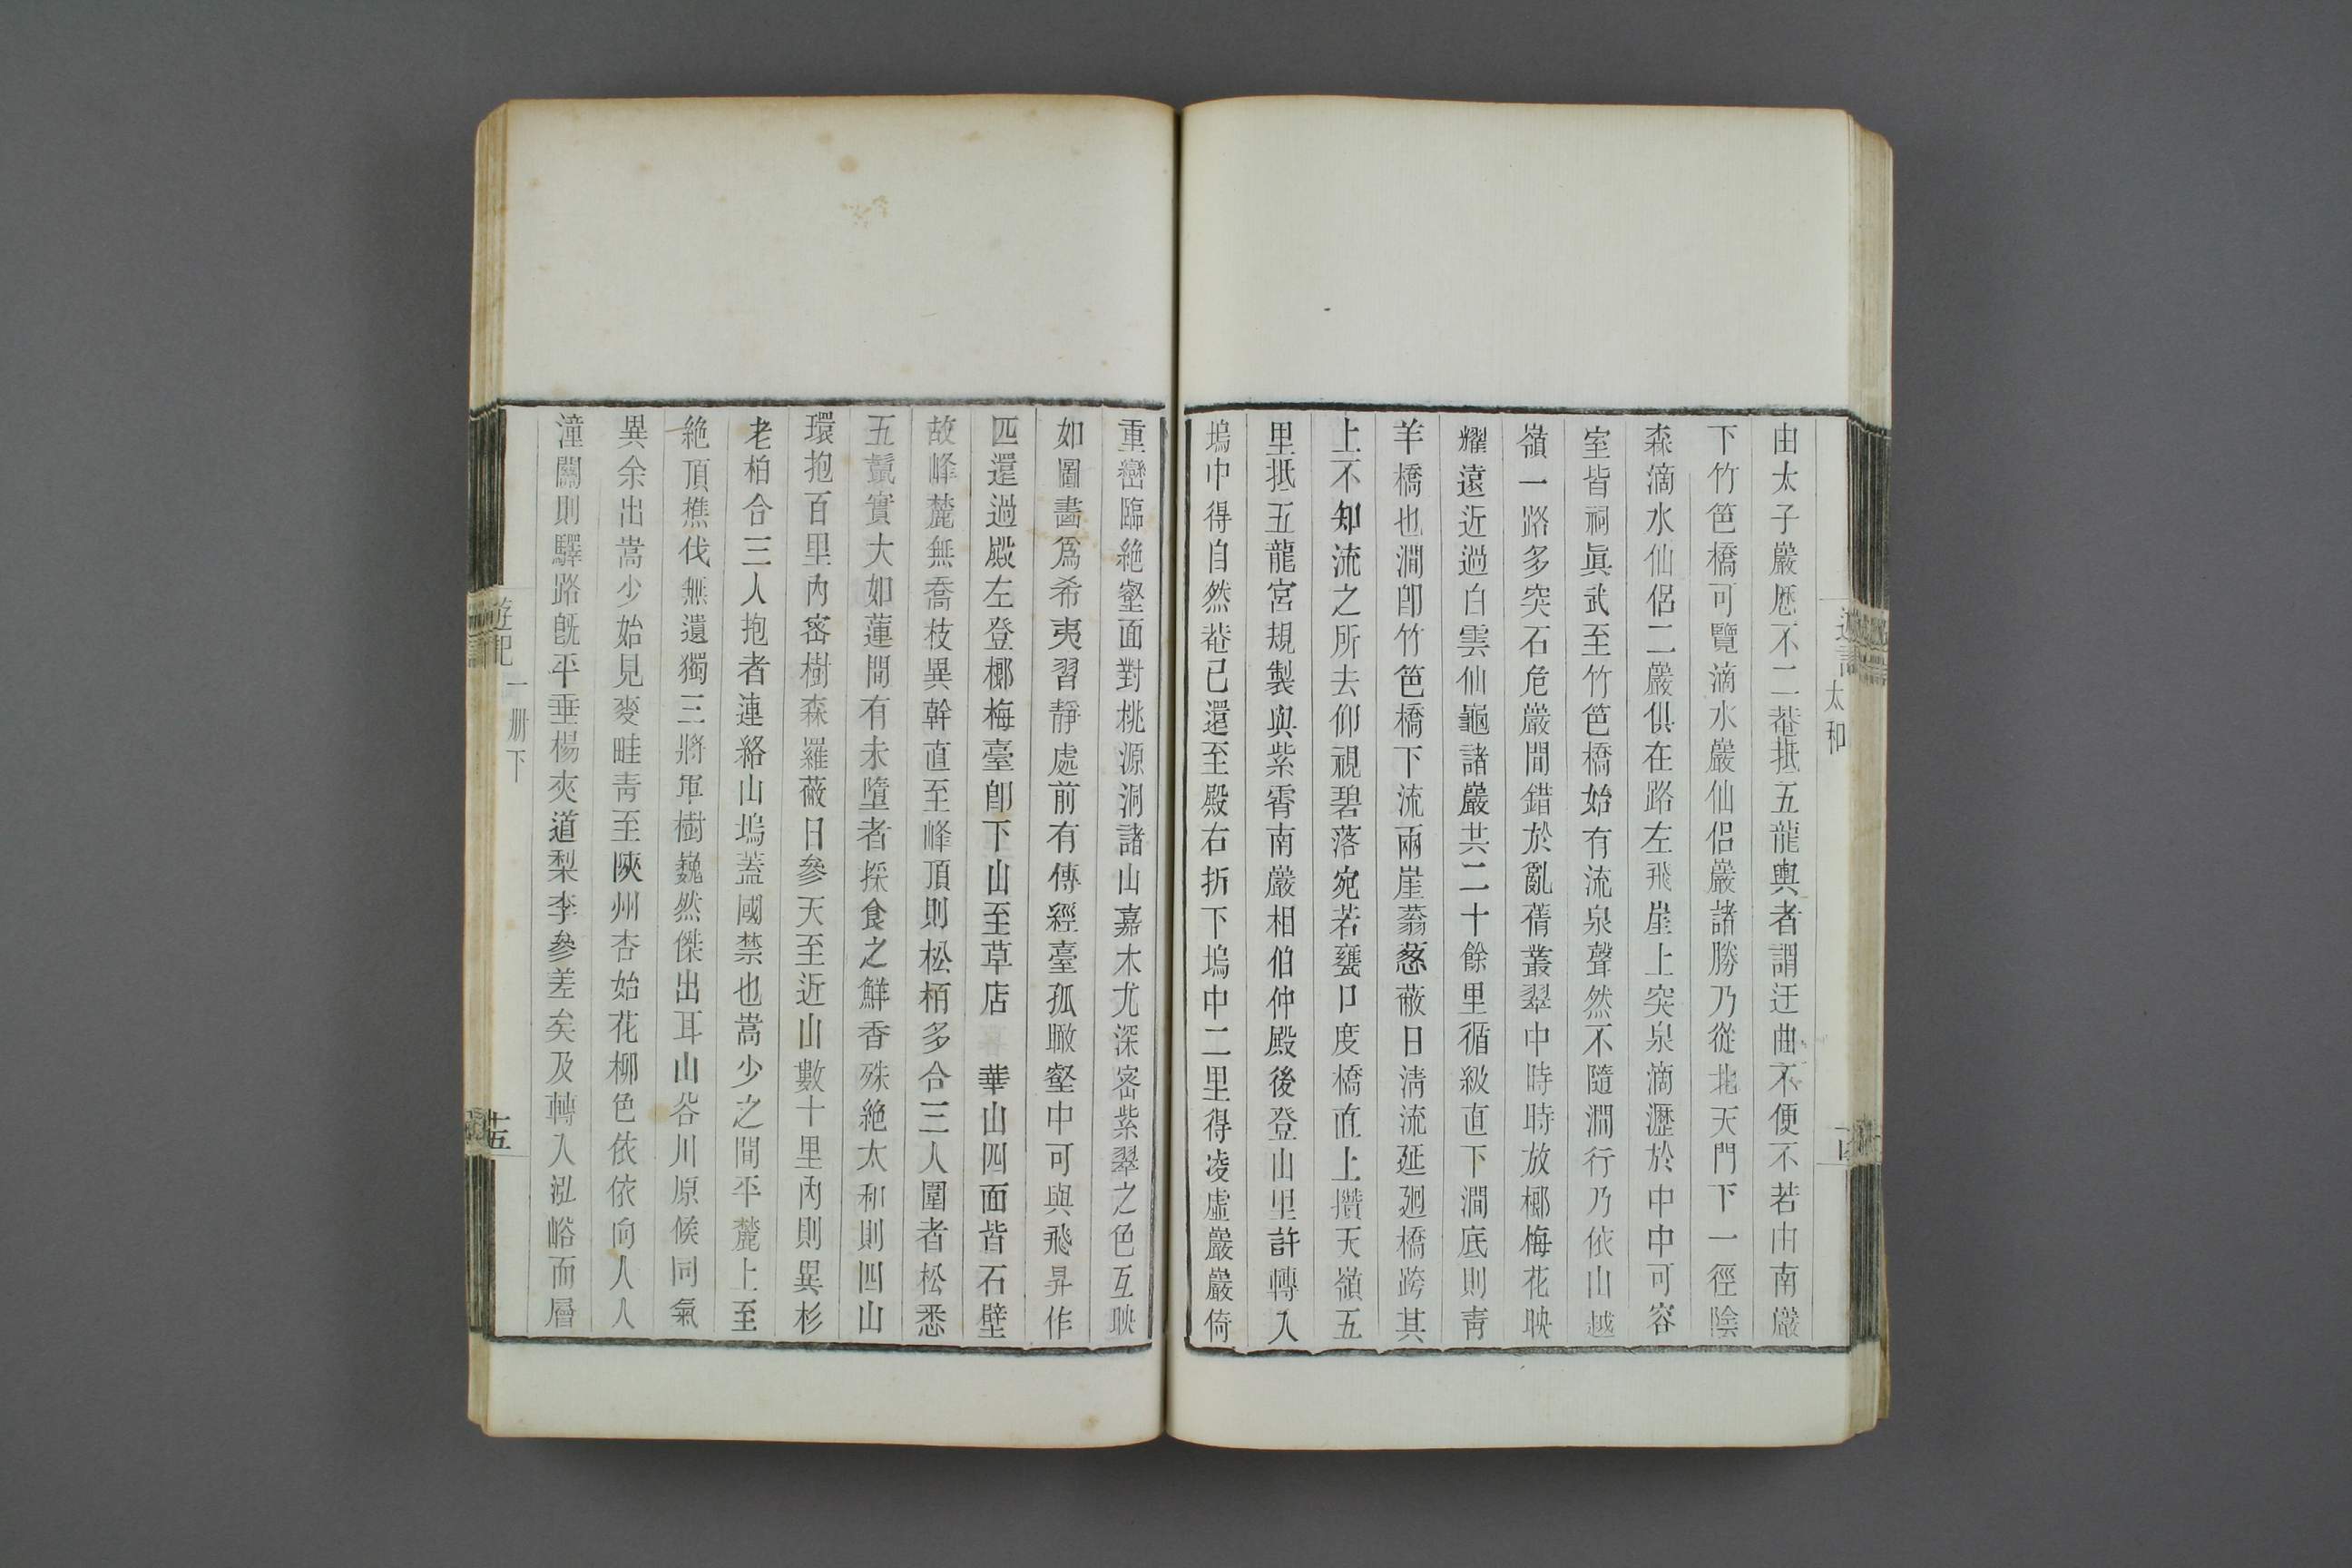 由太子巖歷不二菴抵五龍輿者謂迂曲不便不若由南巖
下竹笆橋可覽滴水巖仙侶巖諸勝乃從北天門下一徑陰
森滴水仙侶二巖俱在路左飛崖上突泉滴瀝於中中可容
室皆祠眞武至竹笆橋始有流泉聲然不隨澗行乃依山越
嶺一路多突石危巖間錯於亂蒨叢翠中時時放榔梅花映
耀遠近過白雲仙龜諸巖共二十餘里循級直下澗底則靑
羊橋也澗卽竹笆橋下流兩崖蓊蔥蔽日淸流延廻橋跨其
上不知流之所去仰視碧落宛若甕口度橋直上攢天嶺五
里抵五龍宮規製與紫霄南巖相伯仲殿後登山里許轉入
塢中得自然菴已還至殿右折下塢中二里得凌虛巖巖倚
太和
重巒臨絶壑面對桃源洞諸山嘉木尤深密紫翠之色互映
如圖畫爲希夷習靜處前有傳經臺孤瞰壑中可與飛昇作
匹還過殿左登榔梅臺卽下山至草店 華山四面皆石壁
故峰麓無喬枝異幹直至峰頂則松栢多合三人圍者松悉
五鬣實大如蓮間有未墮者採食之鮮香殊絶太和則四山
環抱百里內密樹森羅蔽日參天至近山數十里內則異杉
老柏合三人抱者連絡山塢蓋國禁也嵩少之間平麓上至
絶頂樵伐無遺獨三將軍樹巍然傑出耳山谷川原候同氣
異余出嵩少始見麥畦靑至陝州杏始花柳色依依向人入
潼關則驛路旣平垂楊夾道梨李參差矣及轉入泓峪而層
遊記
一册下
十五